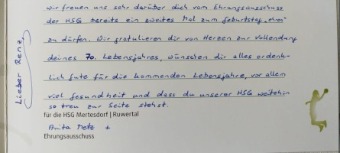 Lieber René,
wir freuen uns sehr darüber dich vom Ehrungsausschuss
der HSG bereits ein zweites Mal zum Geburtstag
zu dürfen. Wir gratulieren dir von Herzen zur Vollendung
deines 70. Lebensjahres, wünschen dir alles erdenk-
lich Gute für die kommenden Lebensjahre, vor allem
viel Gesundheit und dass du unserer HSG weiterhin
so treu zur Seite stehst.
für die HSG Mertesdorf | Ruwertal
Anita
Ehrungsausschuss